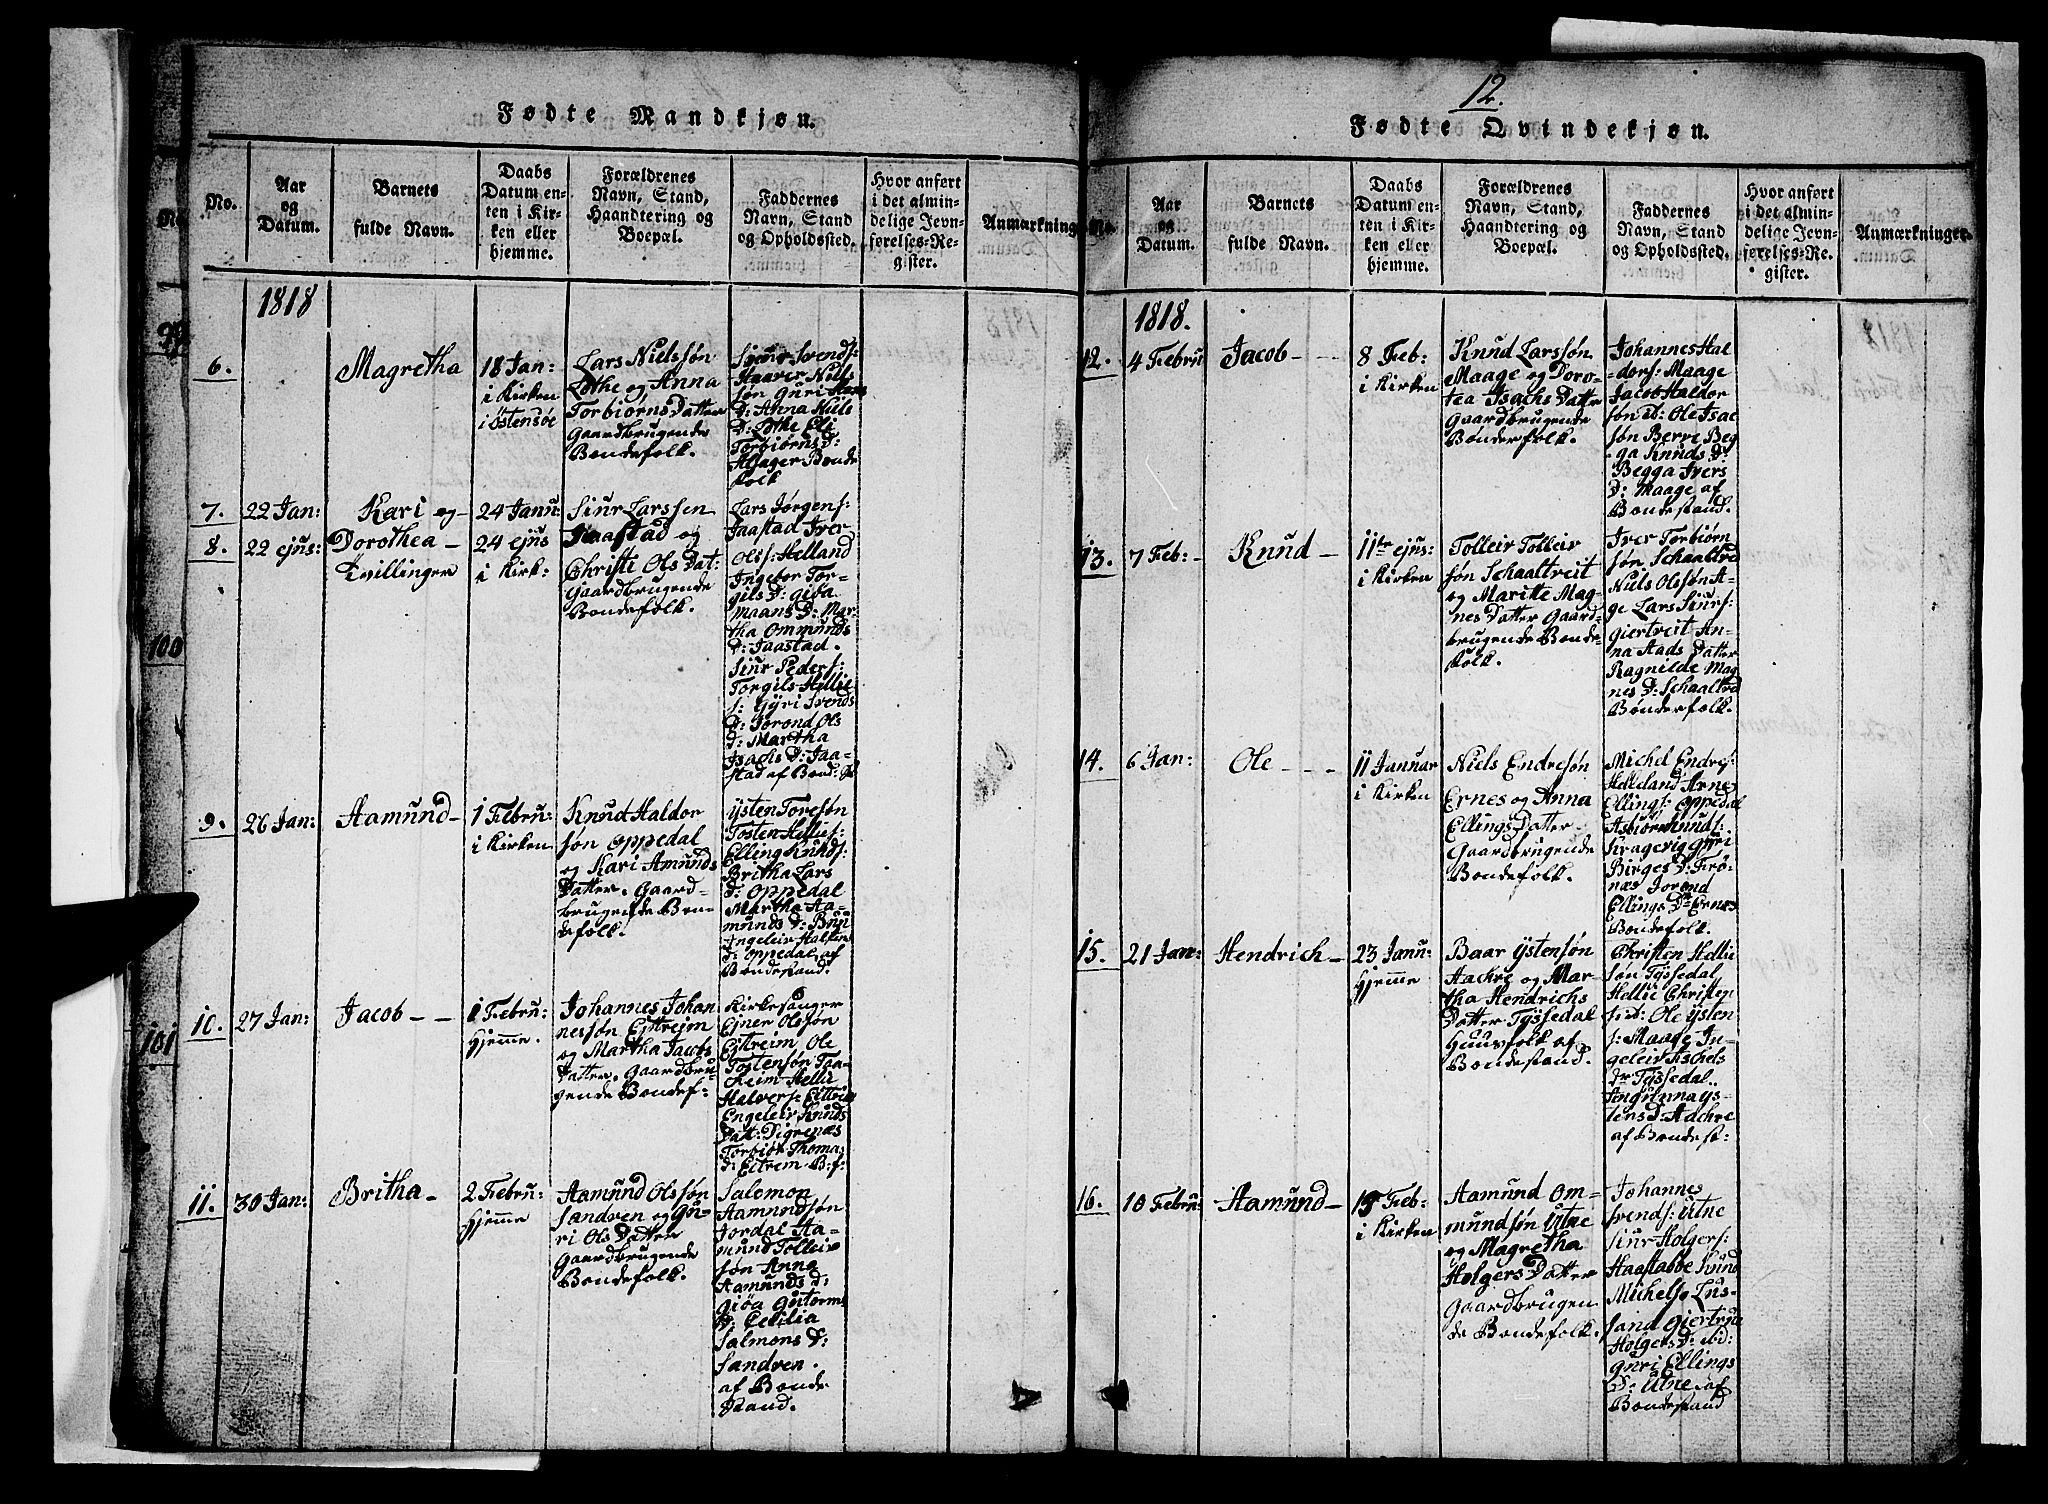 12.
Fødte Mandkjøn.
No.
Aar
og
Datum.
Barnets
fulde Navn.
Daabs
Datum en-
ten i Kir-
ken eller
hjemme.
Forældrenes
Navn, Stand,
Haandtering og
Boepæl.
Faddernes
Navn, Stand
og Opholdssted.
Hvor anført
i det almin-
delige Jevn-
førelses-Re-
gister.
Anmærkninge
99
100
101
1818
6.
Magretha
18 Jan:
i Kirken
i Östensöe
Lars Nielssøn
Lothe og Anna
Torbiørns Datter
Gaardbrugende
Bondefolk.
Siur Svends:
Haaver Niels
søn Guri
D: Anna Niels
D: Lothe Eli
Torbiørns D:
Bonde
folk
7.
22 Jan:
Kari og
24 Janu:
8.
22 ejus:
Dorothea
Tvillinger
24 ejus
i Kirk:
Siur Larssen
Jaastad og
Christi Ols Dat:
Gaardbrugende
Bondefolk.
Lars Jørgens:
Jaastad Iver
Olss: Helland
Ingebor Tor-
gils D: Giöa
Maans D: Mar-
tha Ommunds
D: Jaastad.
Siur Peders:
Torgils Hellie
s: Gyri Svends
D: Jorond Ols
D: Martha
Isachs D: Jaa-
stad af Bond: S
9.
26 Jan:
Aamund
1 Febru:
i Kirken
Knud Haldor
søn Oppedal
og Kari Amunds
Datter. Gaard-
brugende Bon-
defolk.
Ysten Toresøn
Tosten Hellies:
Elling Knuds:
Britha Lars
D: Oppedal
Martha Aa-
munds D:
Ingeleiv
D: Oppedal af
Bondestand.
10.
27 Jan:
Jacob
1 Febru:
Hjemme.
Johannes Johan
nessøn Eittreim
og Martha Jacobs
Datter. Gaardbru
gende Bondef:
Kirkesanger
Ejner Olssøn
Eittreim Ole
Tostensøn
Hellie
Halvers:
Engeleiv Knuds
Datt: Digrenæs
Torbiör Thoma
D: Eitrem B:f:
11.
30 Jan:
Britha
2 Febru:
Hjemme
Aamund Olssøn
Sandven og Gu-
ri Ols Datter
Gaardbrugende
Bondefolk.
Salomon
Aamundsøn
Jordal Aa-
mund Tolleiv
søn Anna
Aamunds D:
Giöa Gutorm
D: Cecilia
Salmons D:
Sandven.
af Bonde
stand.
Fødte Qvindekjøn.
No.
Aar
og
Datum.
Barnets
fulde Navn.
Daabs
Datum en-
ten i Kir-
ken eller
hjemme.
Forældrenes
Navn, Stand,
Haandtering og
Boepæl.
Faddernes
Navn, Stand
og Opholdssted.
Hvor anført
i det almin-
delige Jevn-
førelses-Re-
gister.
Anmærkninger.
1818.
12.
4 Febru
Jacob
8 Feb:
i Kirken
Knud Larssøn
Maage og Doro-
tea Isachs Datter
Gaardbrugende
Bondefolk.
Johannes Hal
dors: Maage
Jacob Haldor
søn ib: Ole Isac
søn Berve Beg
ga Knuds D:
Begga Ivers
D: Maage af
Bondestand.
13.
7 Feb:
Knud
11te ejus:
i Kirken
Tolleiv Tolleiv
søn Schaaltveit
og Maritte Mag-
nes Datter Gaard-
brugende Bonde-
folk.
Iver Torbiørn
søn Schaaltved
Niels Olssøn A-
ge Lars Siurs:
Giertveit An-
na Aads Datter
Ragnilde Mag
nes D: Schaaltved
Bønderfolk.
14.
6 Jan:
Ole
11 Januar
i Kirken
Niels Endresøn
Ernes og Anna
Ellings Datter.
Gaardbrugende
Bondefolk.
Michel Endres:
Helleland Arne
Ellings: Oppedal
Asbiørn Knuds:
Kragevig Gyri
Birges D:
Jorond
Ellings Dr Ernes
Bondefolk.
15.
21 Jan:
Hendrich
23 Janu:
Hjemme
Baar Ystensøn
Aachre og Mar-
tha Hendrichs
Datter Tyssedal
Huusfolk af
Bondestand.
Christen Hellie
søn Tyssedal
Hellie Christen
s ib: Ole Ysten
s: Maage In-
geleiv Aschels
Dr Tyssedal.
Ys-
tens D: Aachre
af Bondest:
16.
10 Febru:
Aamund
15 Feb:
i Kirken
Aamund Om-
mundsøn Utne
og Magretha
Holgers Datter
Gaardbrugen
de Bondefolk.
Johannes
Svends: Utne
Siur Holgers:
Haastabbe Svend
Michels: Lus-
sand Giertrue
Holgers D: ibid:
Guri Ellings
D: Utne. af
Bondestand